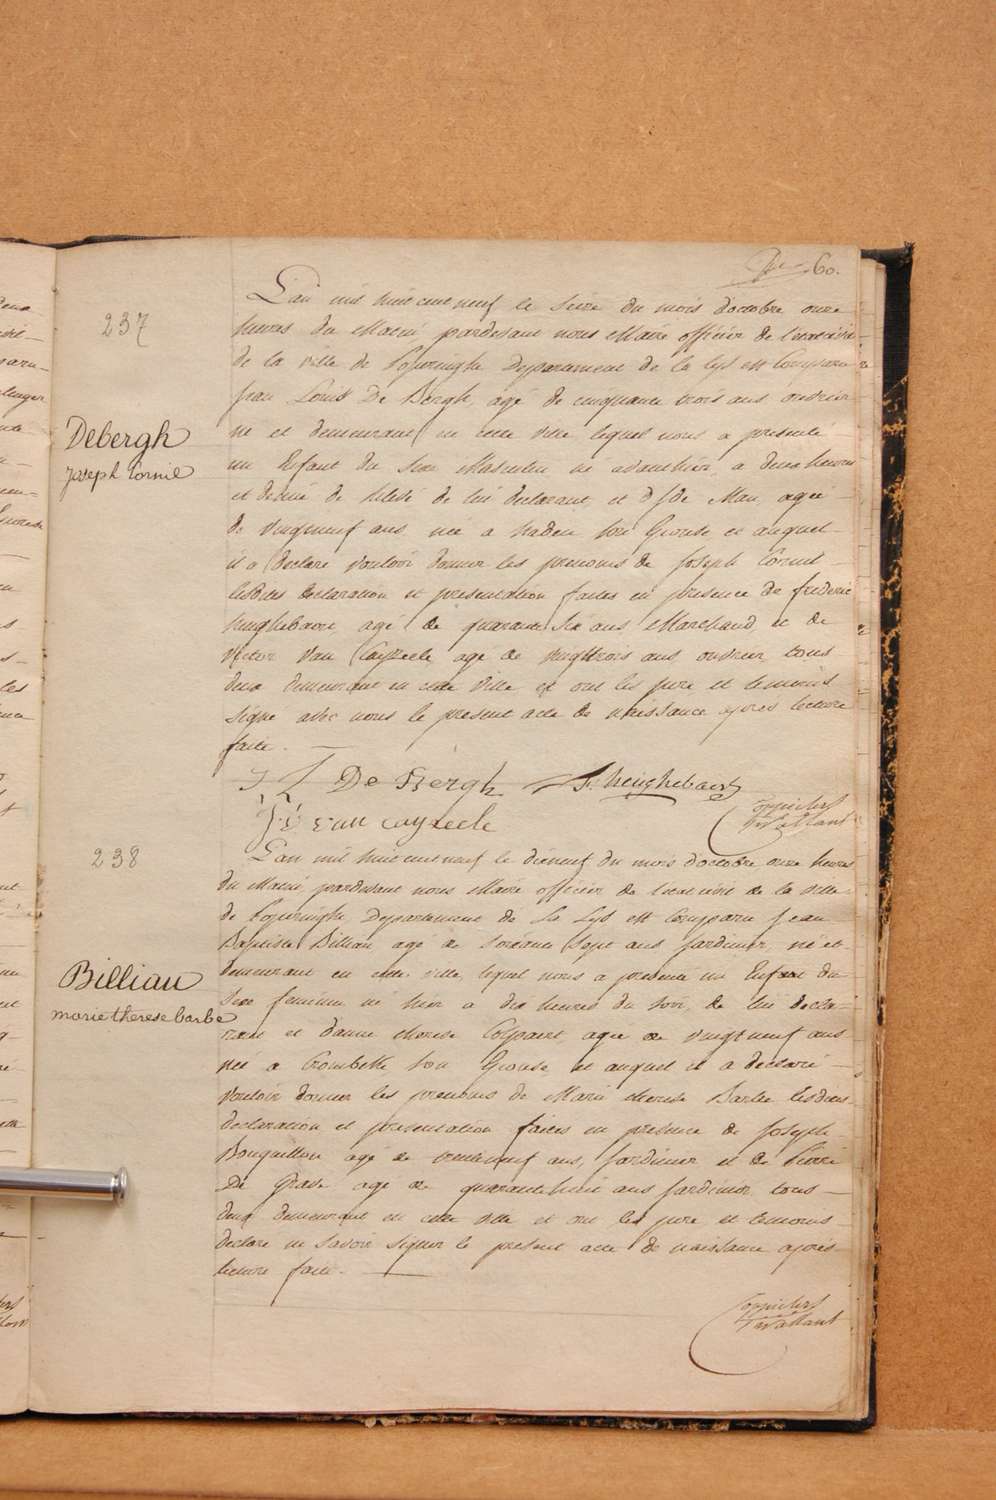 60.
237
Debergh
Joseph Cornil
L'an mil huit cent neuf le seize du mois d'octobre onze
heures du Matin, pardevant nous Maire officier de l'état civil
de la ville de Poperinghe Departement de la Lys est Comparu
Jean Louis De Bergh, agé de cinquante trois ans
né et demeurant en cette ville lequel nous a presenté
un Enfant du sexe Masculin né avanthier, a deux heures
et demie de relevé de lui declarant, et de Man, agée
de vingtneuf ans née a son Epouse et auquel
il a declaré vouloir donner les prenoms de Joseph Cornil
lesdites declaration et presentation faites en presence de frederic
heughebaert, agé de quarante six ans Marchand et de
victor Van Cayzeele agé de vingttrois ans ouvrier, tous
deux demeurant en cette ville et ont les pere et temoins
signé avec nous le present acte de naissance apres lecture
faite.
De Bergh F. heughebaert
van cayzeele
238
Billiau
marie therese barbe
L'an mil huit cent neuf le dixneuf du mois d'octobre onze heures
du Matin, pardevant nous Maire officier de l'état civil de la ville
de Poperinghe Departement de La Lys est Comparu Jean
Baptiste Billiau, agé de soixante sept ans Jardinier, né et
demeurant en cette ville, lequel nous a presenté un Enfant du
sexe feminin né hier a dix heures du soir, de lui decla-
rant et d'anne therese agée de vingt neuf ans
née a Crombeke son Epouse, et auquel il a declaré
vouloir donner les prenoms de Marie therese Barbe lesdites
declaration et presentation faites en presence de Joseph
Bouquillon agé de trenteneuf ans, Jardinier et de Pierre
De Grave agé de quarantehuit ans Jardinier tous
deux demeurant en cette ville et ont les pere et temoins
declaré ne savoir signer le present acte de naissance après
lecture faite.